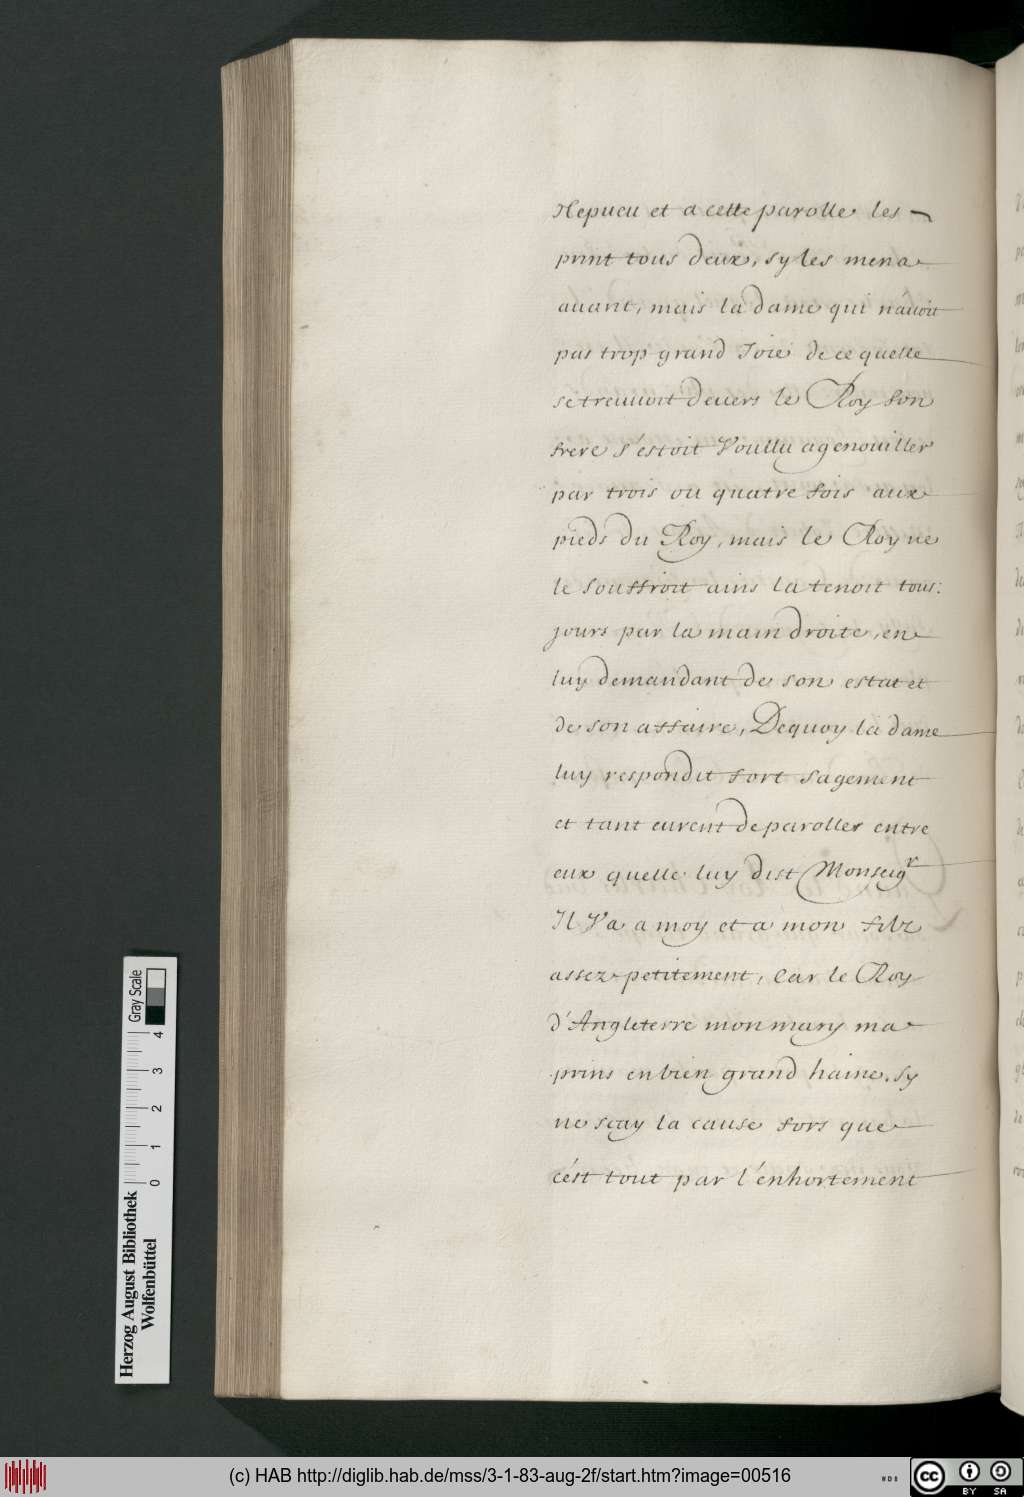 Nepueu et a cette parolle les
print tous deux, sy les mena
auant, mais la dame qui n'auoit
pas trop grand Joie de ce quelle
se treuuoit deuers le Roy son
frere s'estoit Voullu agenouiller
par trois ou quatre fois aux
pieds du Roy, mais le Roy ne
le souffroit ains la tenoit tous:
jours par la main droite, en
luy demandant de son estat et
de son affaire, Dequoy la dame
luy respondit fort sagement
et tant eurent de parolles entre
eux quelle luy dist Monseigr
Il Va a moy et a mon filz
assez petitement, Car le Roy
d'Angleterre mon mary ma
prins en bien grand haine, sy
ne sçay la cause fors que
c'est tout par l'enhortement
Gray Scale
4
3
2
1
0
Herzog August Bibliothek
Wolfenbüttel
(c) HAB http://diglib.hab.de/mss/3-1-83-aug-2f/start.htm?image=00516
WDB
cc
BY SA